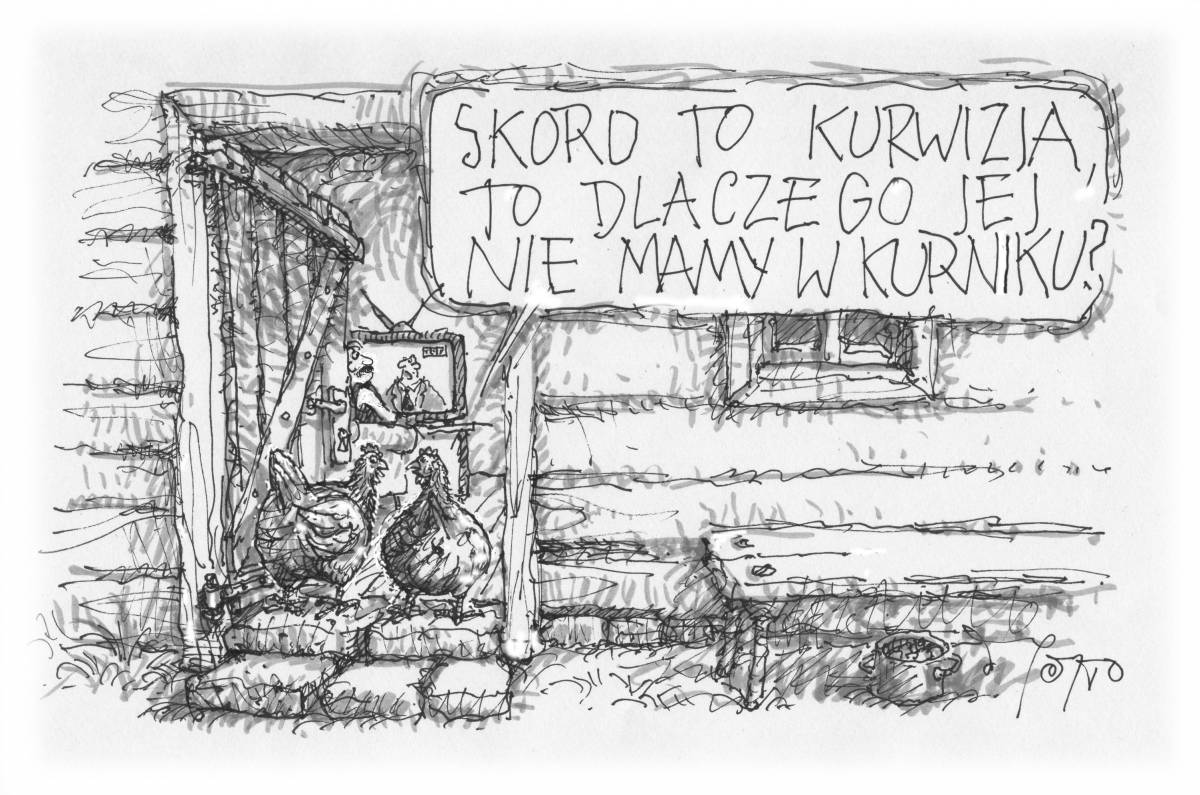 SKORO TO KURWIZJA,
TO DLACZEGO JEJ
NIE MAMY W KURNIKU?